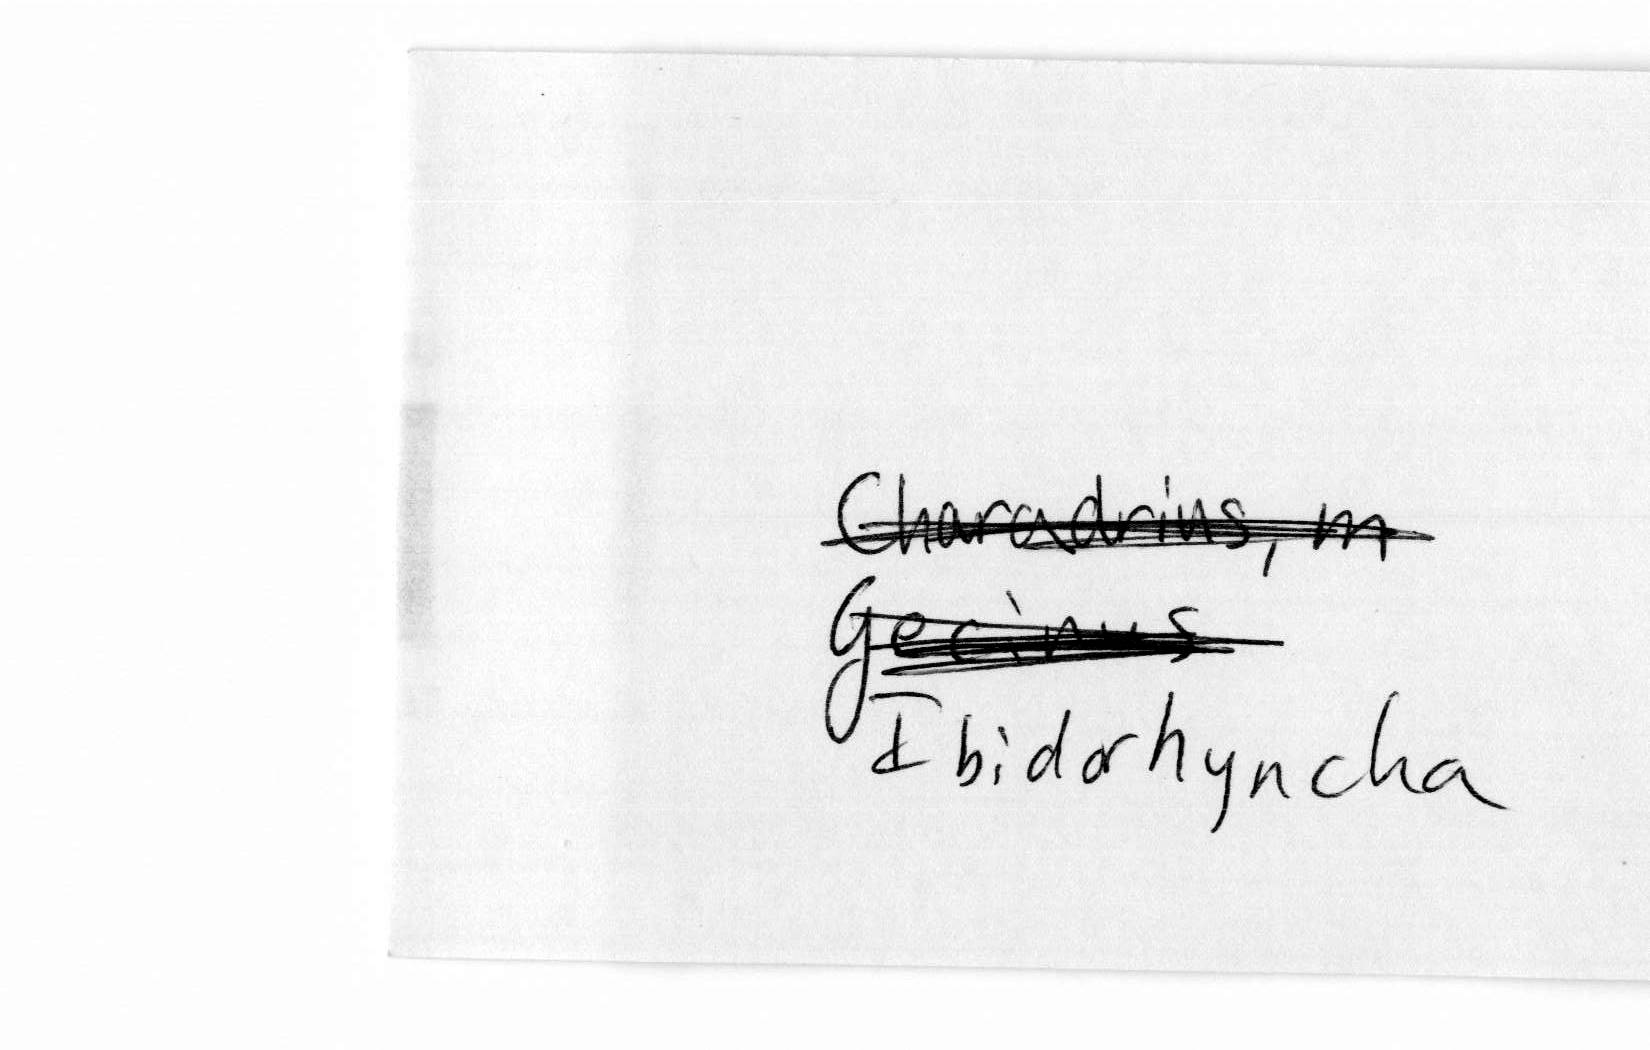 Charadrius, m
Gecinus
Ibidorhyncha